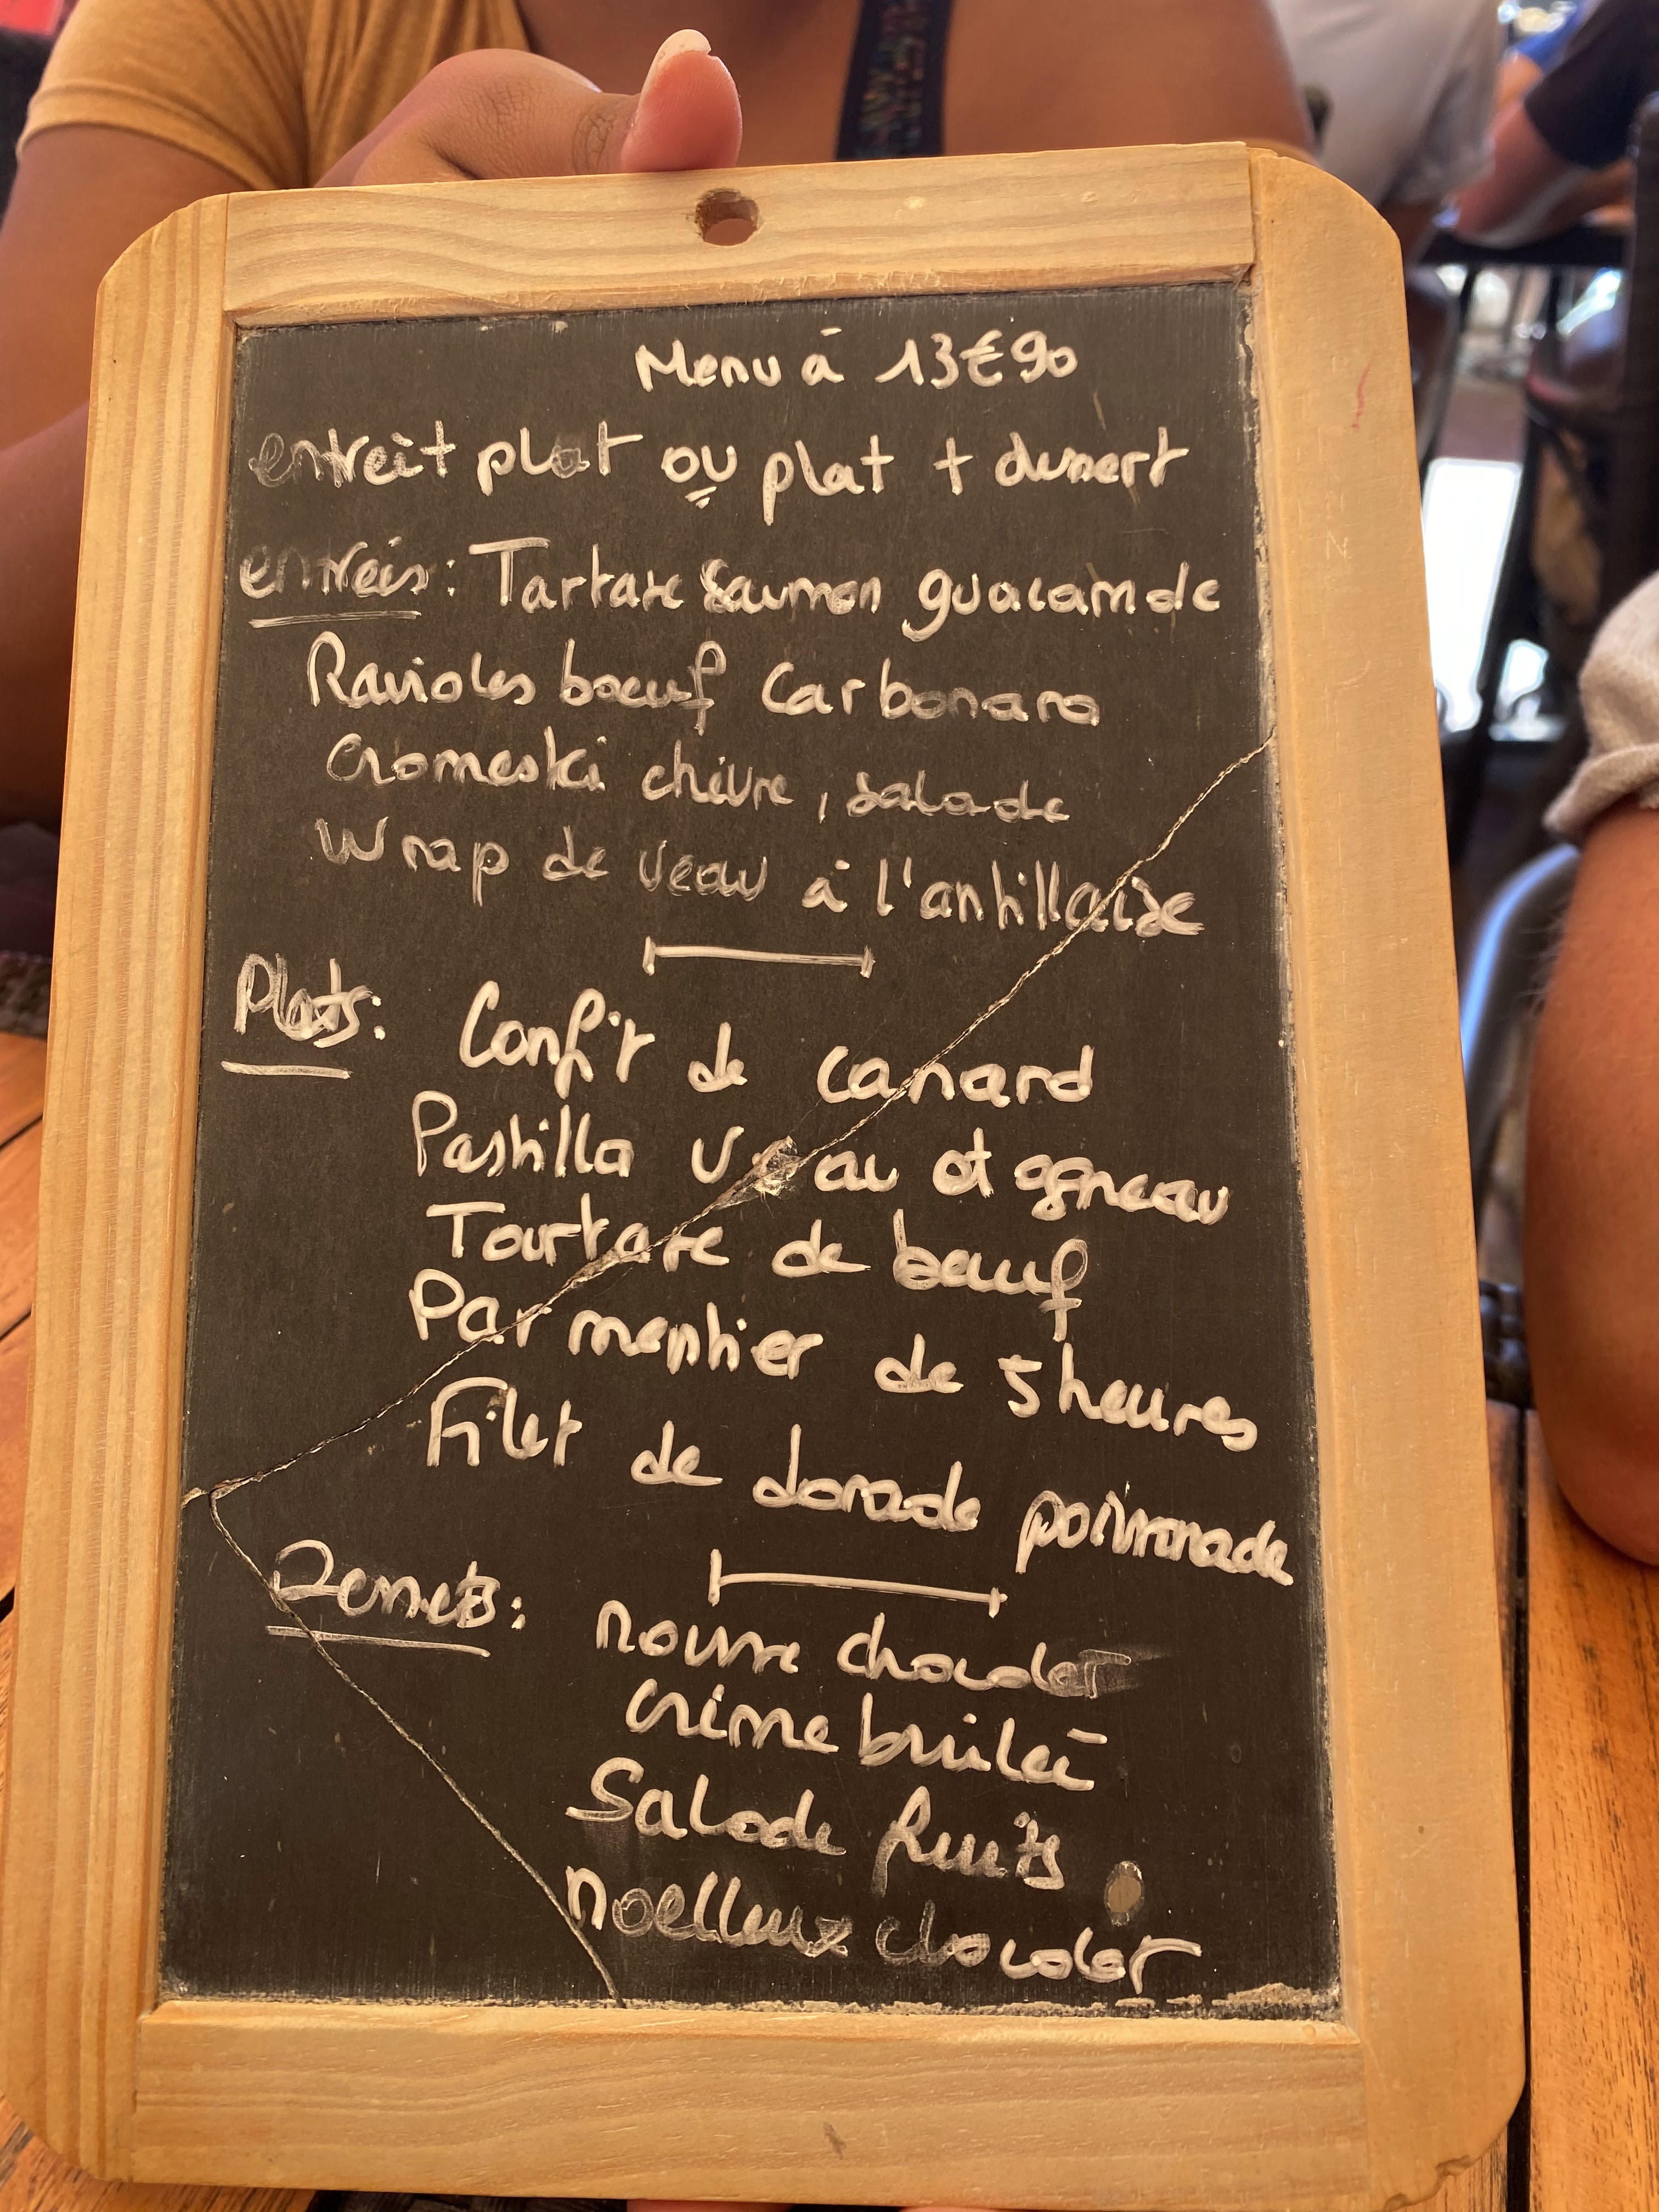 Menu à 13€90
entrée + plat ou plat + dessert
entrées : Tartare Saumon guacamole
Ravioles boeuf Carbonara
Cromeski chèvre, salade
Wrap de veau à l'antillaise
Plats : Confit de canard
Pastilla veau et agneau
Tartare de boeuf
Parmentier de 5 heures
Filet de dorade poivronade
Desserts : mousse chocolat
crème brulée
Salade fruits
moelleux chocolat